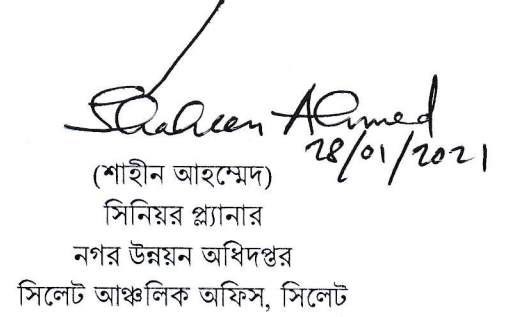 Shaheen Ahmed
28/01/2021
(শাহীন আহম্মেদ)
সিনিয়র প্ল্যানার
নগর উন্নয়ন অধিদপ্তর
সিলেট আঞ্চলিক অফিস, সিলেট